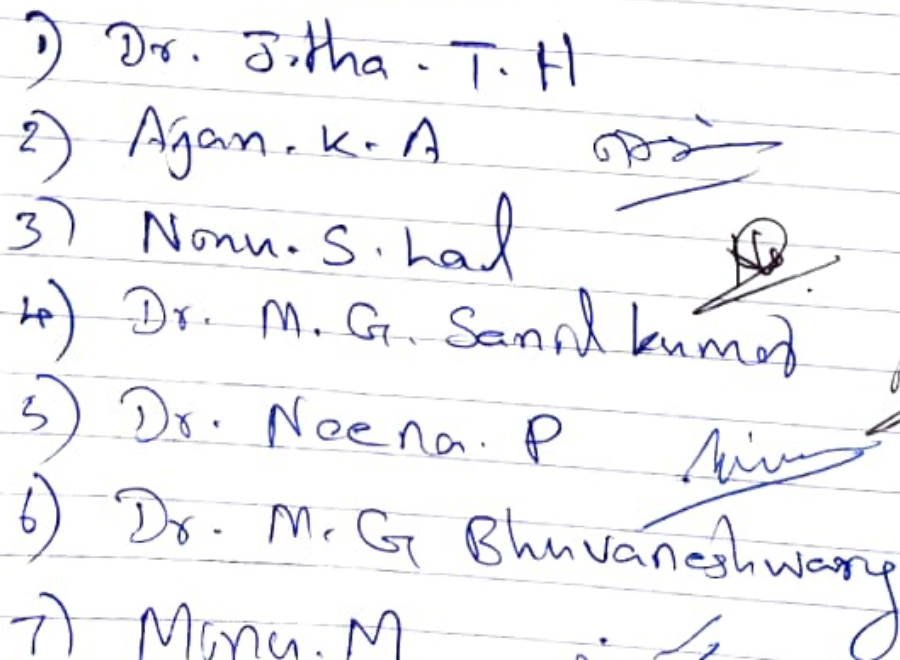 1) Dr. Jitha. T. H
2) Ajan. K. A
3) Nonu. S. Lal
4) Dr. M. G. Sanal kumar
5) Dr. Neena. P
6) Dr. M. G Bhuvaneshwary
7) Manu. M